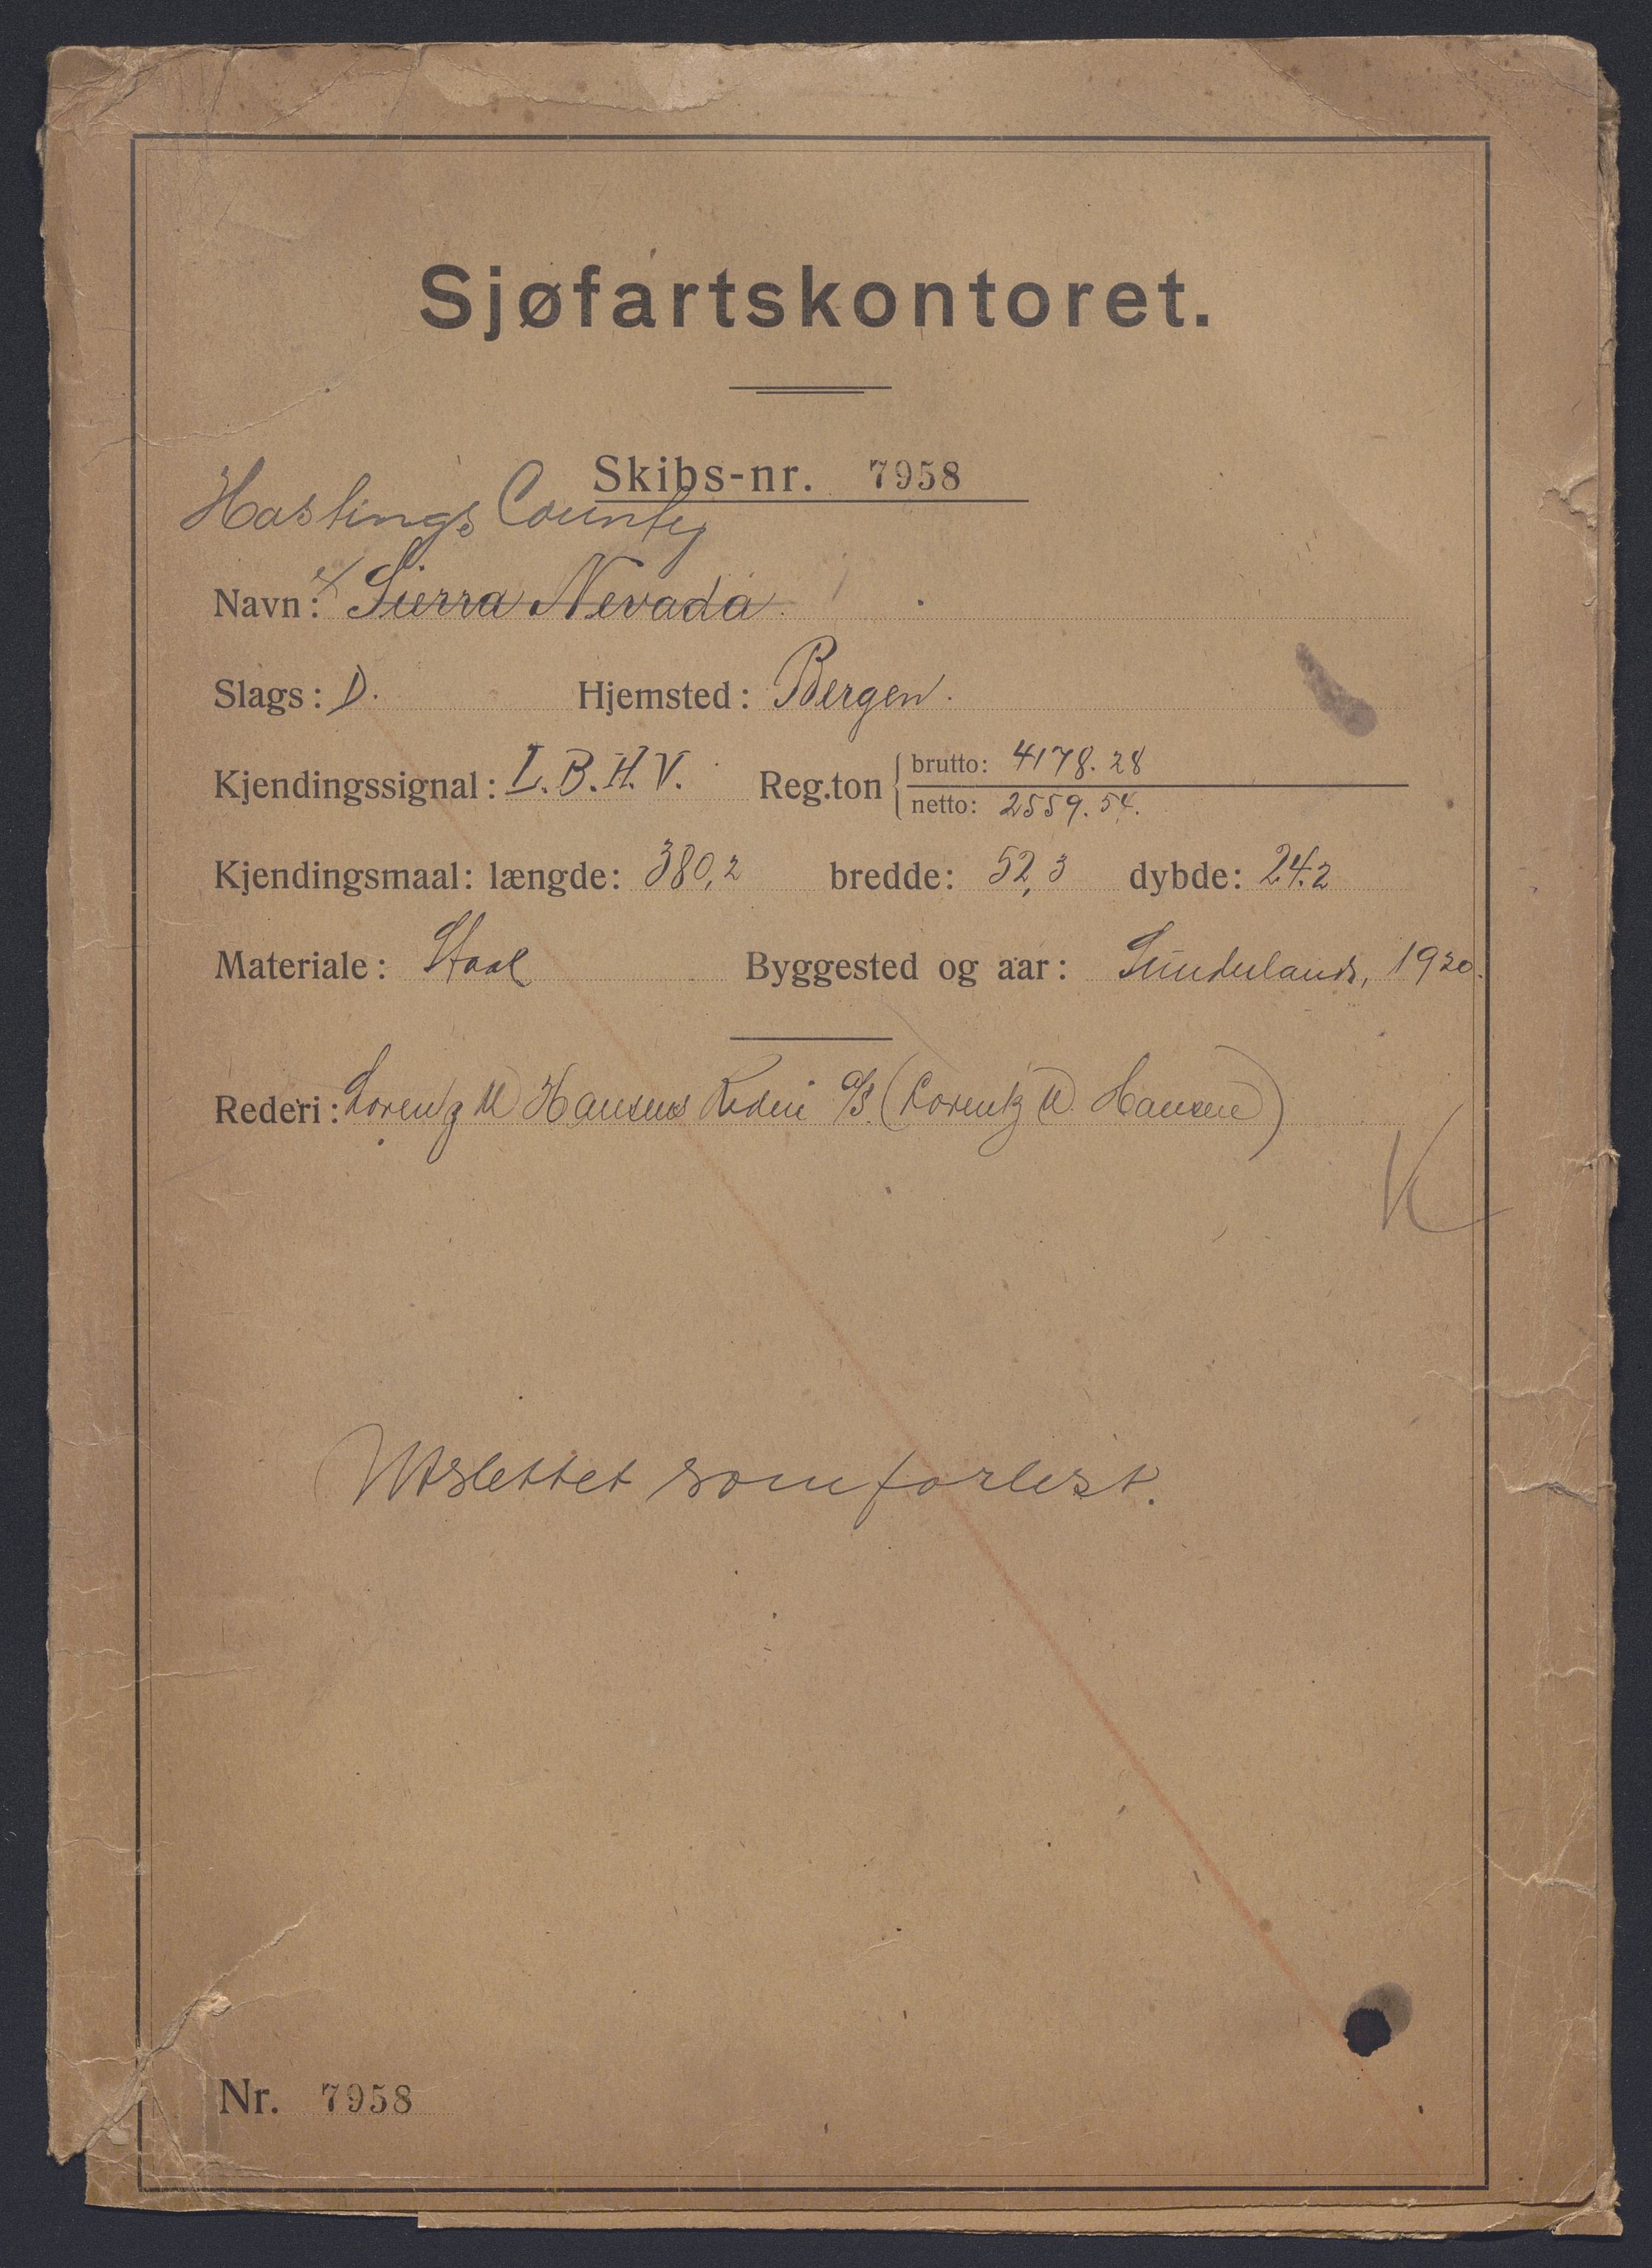 Sjøfartskontoret.
Skibs-nr. 7958
Hastings County
Navn: ex Sierra Nevada.
Slags: D. Hjemsted: Bergen.
Kjendingssignal: L.B.H.V. Reg.ton { brutto: 4178.28
netto: 2559.54.
Kjendingsmaal: længde: 380,2 bredde: 52,3 dybde: 24.2
Materiale: Staal Byggested og aar: Sunderland, 1920.
Rederi: Lorentz W Hansens Rederi A/S. (Lorentz W. Hansen)
K
Utslettet som forlist.
Nr. 7958